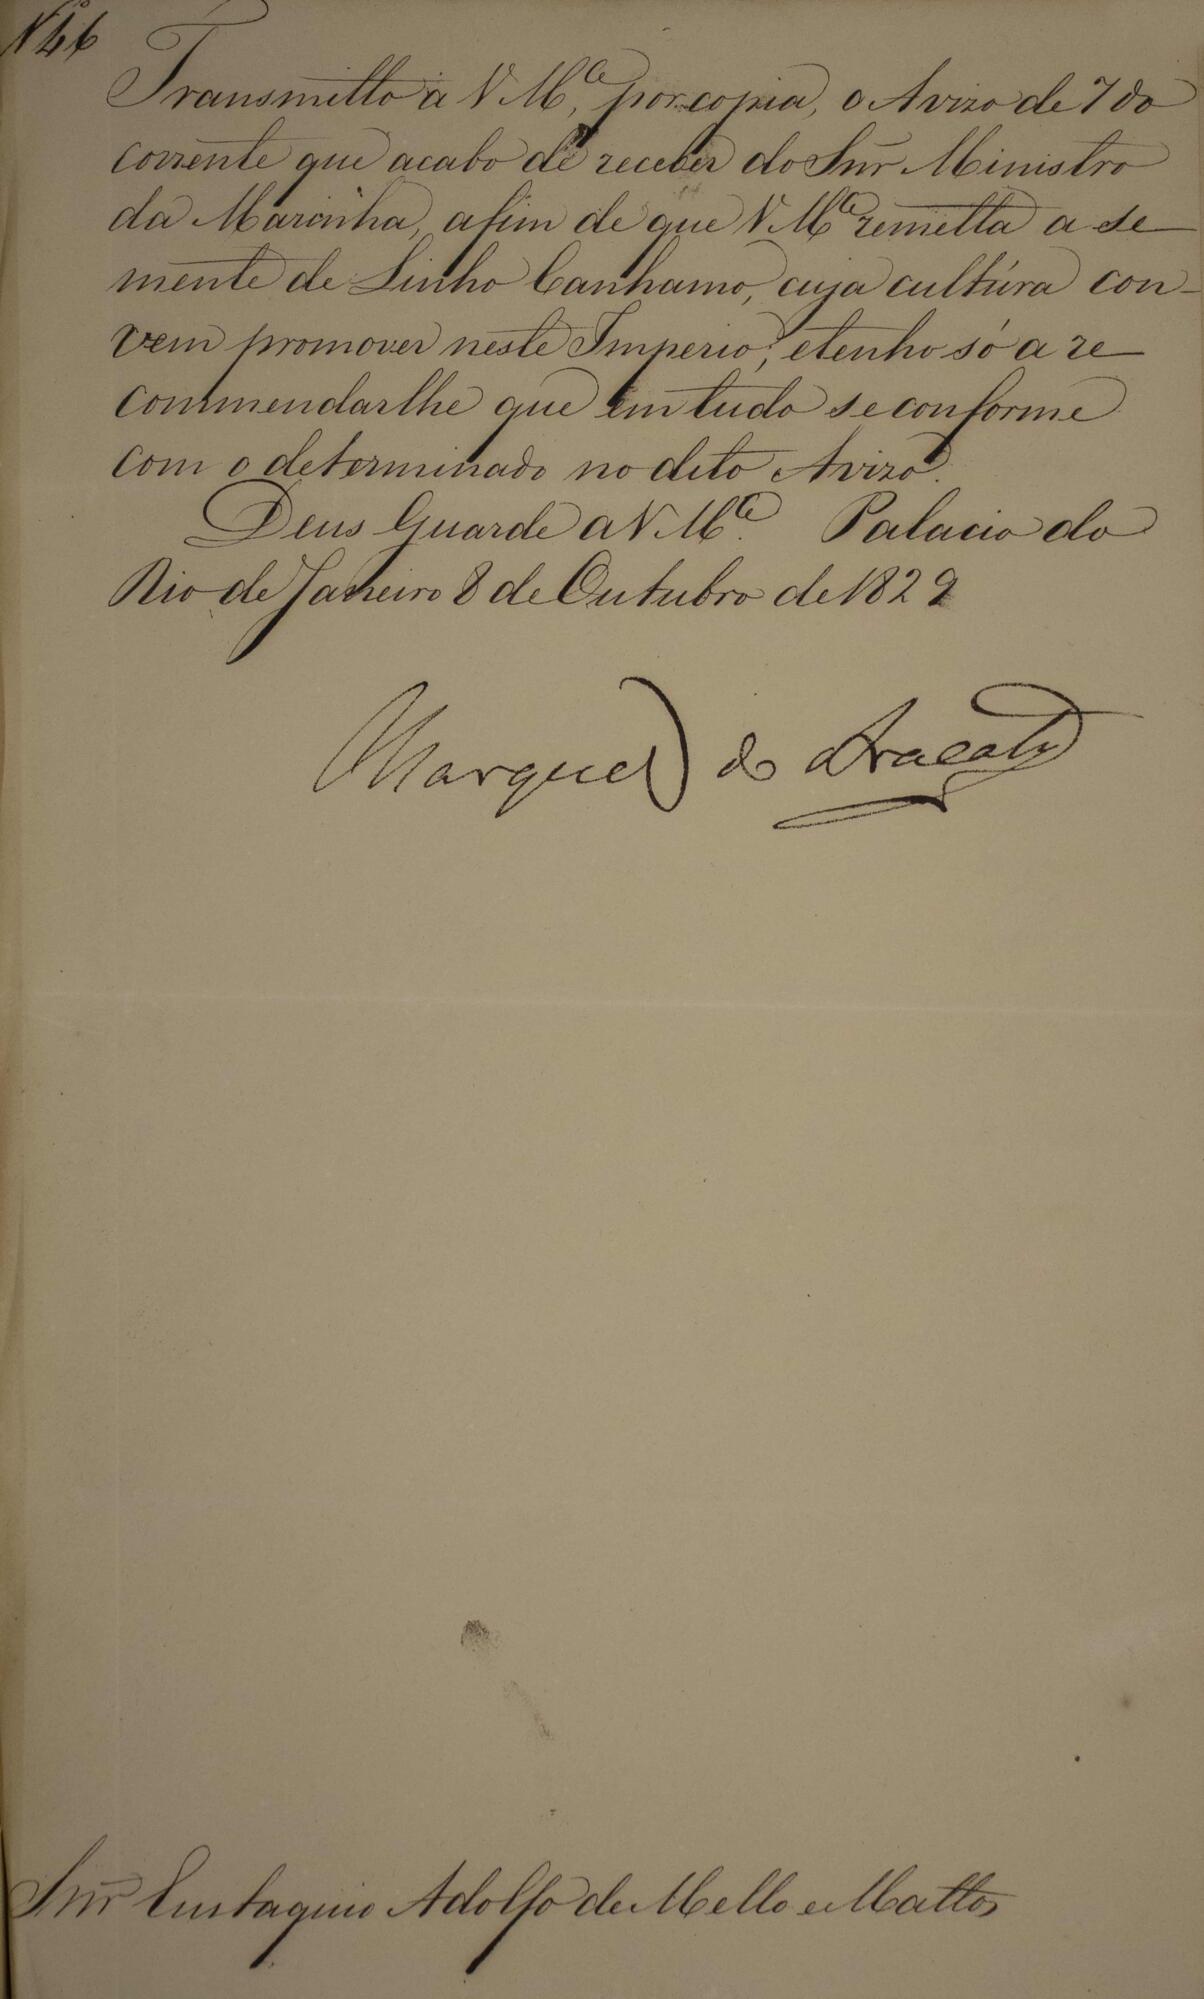 Nº 46
Transmitto a V. M.ce, por copia, o Avizo de 7 do
corrente que acabo de receber do Snr Ministro
da Marinha, afim de que V. M.ce remetta a se
mente de Linho Canhamo, cuja cultúra con-
vem promover neste Imperio; e tenho só a re
commendarlhe que em tudo se conforme
com o determinado no dito Avizo.
Deus Guarde a V. M.ce. Palacio do
Rio de Janeiro 8 de Outubro de 1829
Marquez do Aracaty
Snr Eustaquio Adolfo de Mello e Mattos